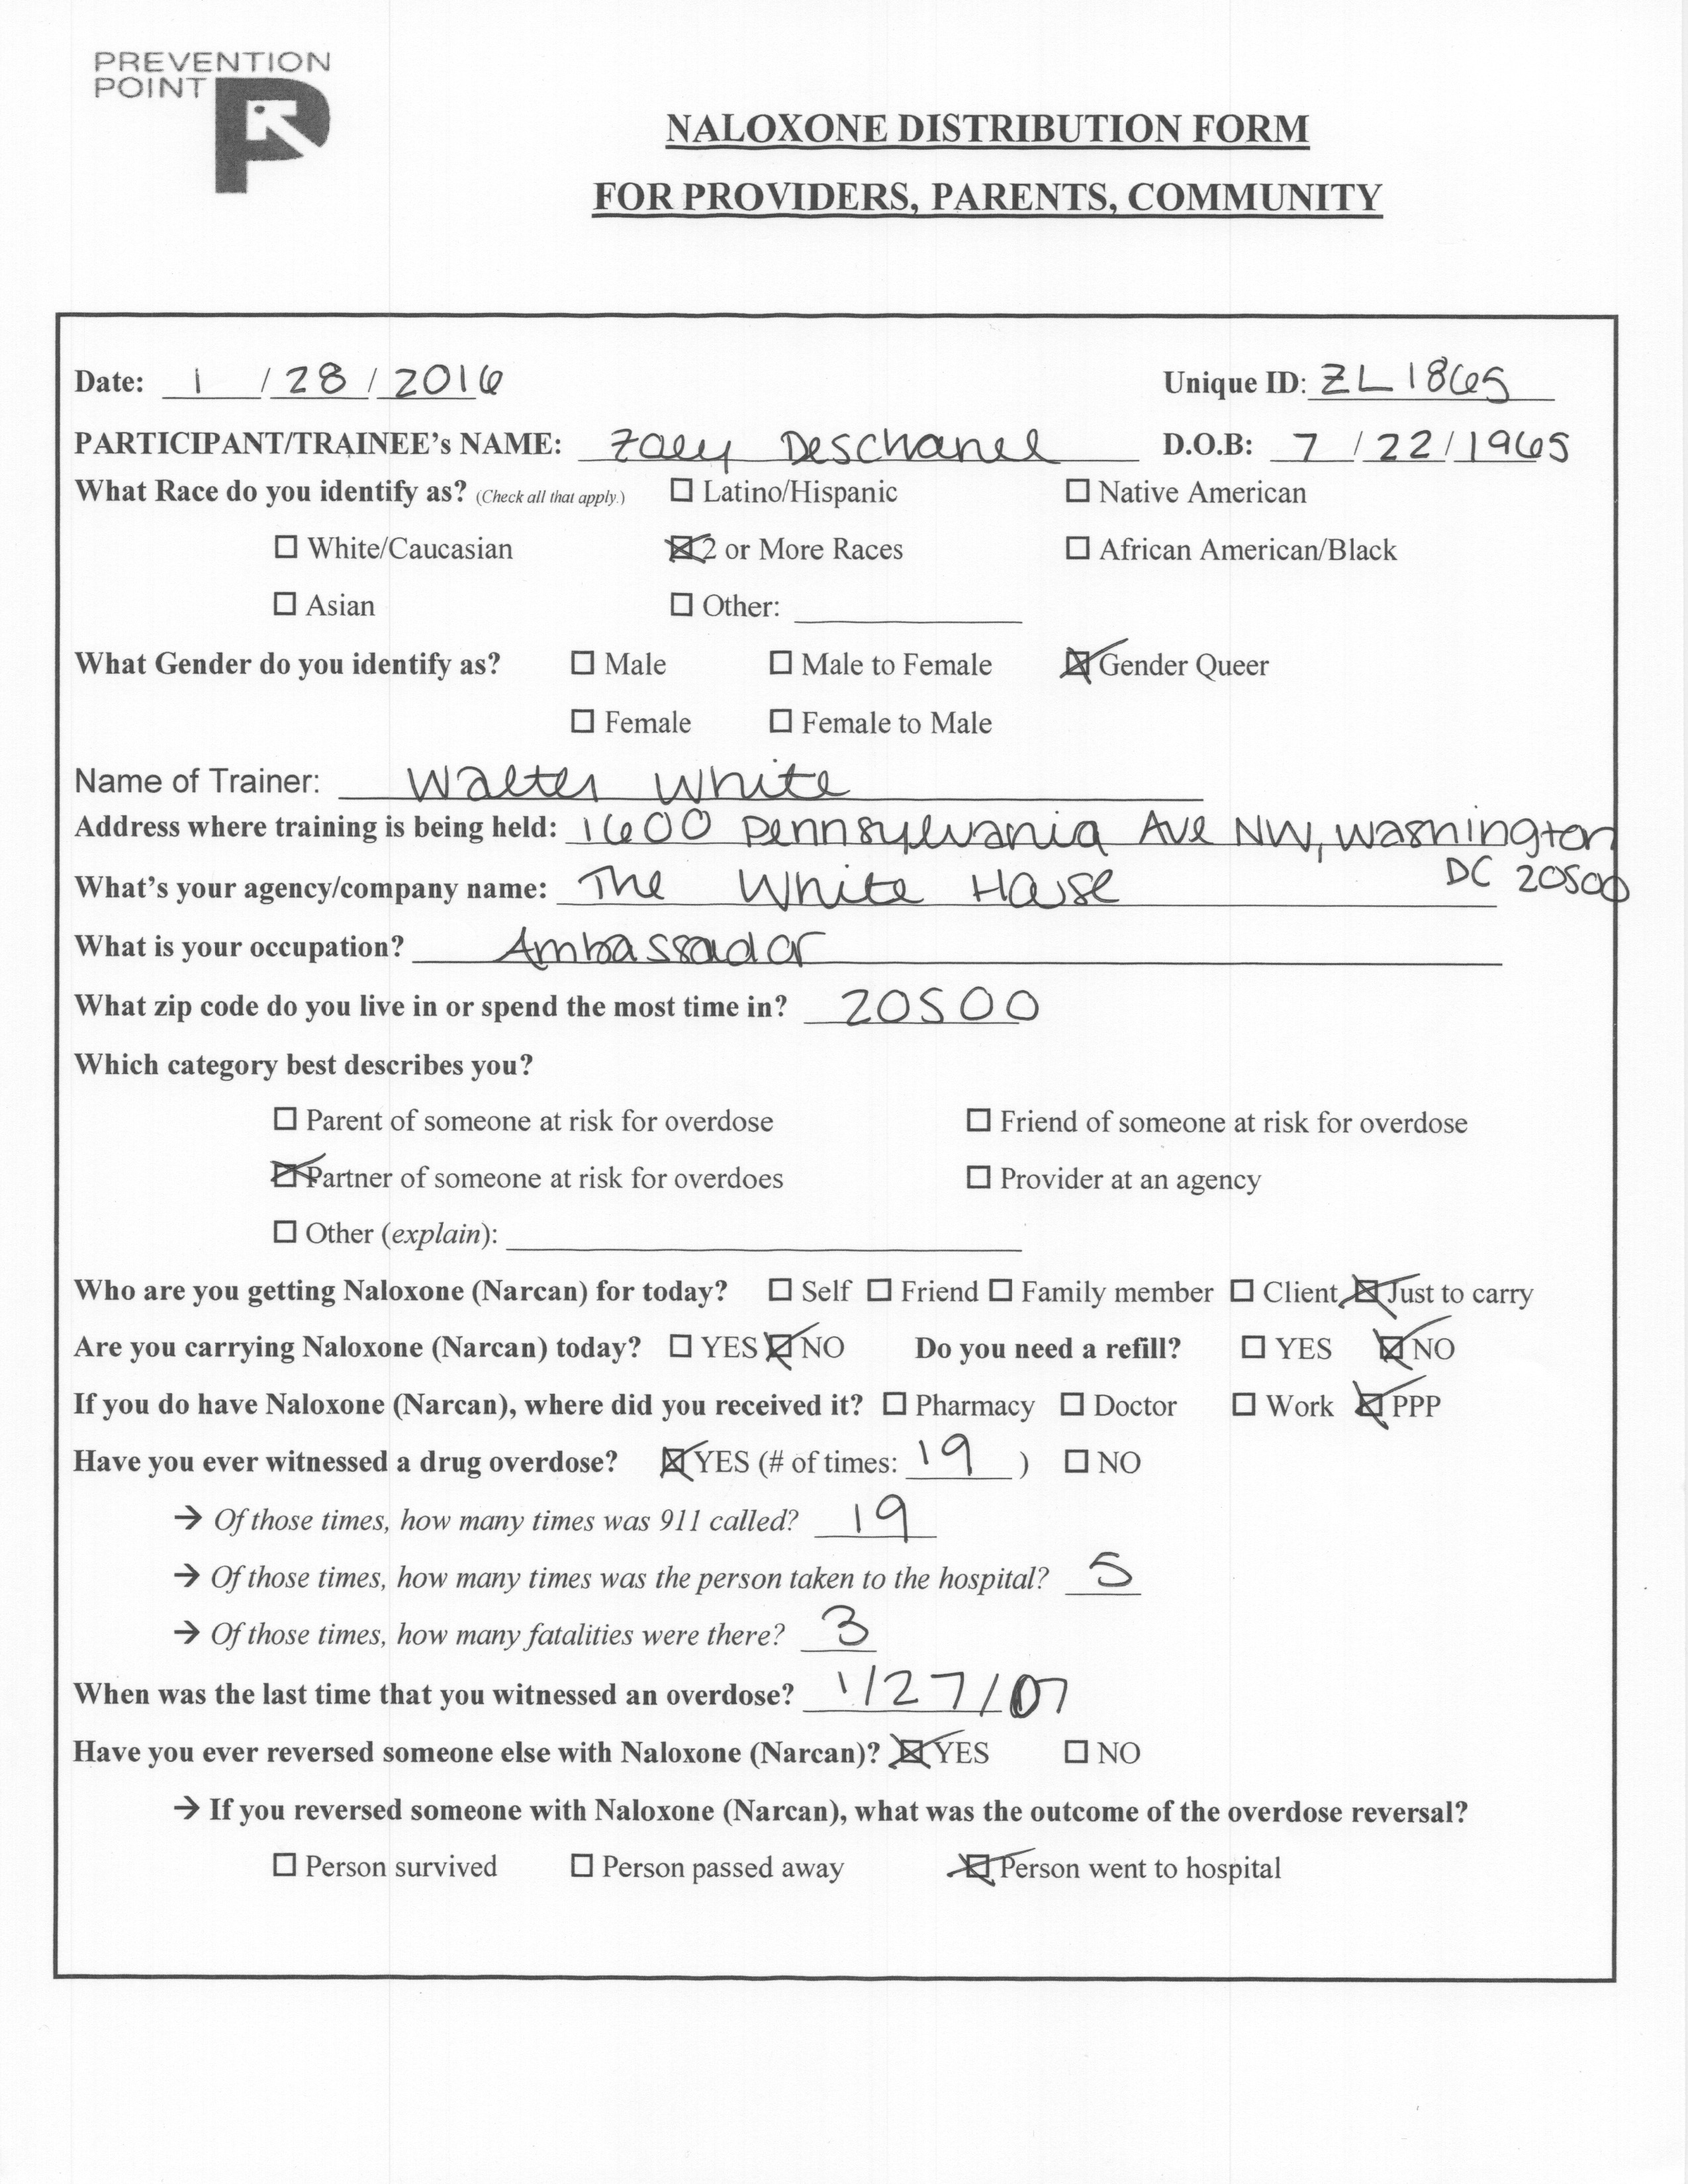 PREVENTION
POINT
NALOXONE DISTRIBUTION FORM
FOR PROVIDERS, PARENTS, COMMUNITY
Date: 1 / 28 / 2016 Unique ID: ZL1865
PARTICIPANT/TRAINEE's NAME: Zoey Deschanel D.O.B: 7 / 22 / 1965
What Race do you identify as? (Check all that apply.) ☐ Latino/Hispanic ☐ Native American
☐ White/Caucasian ☒ 2 or More Races ☐ African American/Black
☐ Asian ☐ Other: ____
What Gender do you identify as? ☐ Male ☐ Male to Female ☒ Gender Queer
☐ Female ☐ Female to Male
Name of Trainer: Walter White
Address where training is being held: 1600 Pennsylvania Ave NW, Washington
DC 20500
What's your agency/company name: The White House
What is your occupation? Ambassador
What zip code do you live in or spend the most time in? 20500
Which category best describes you?
☐ Parent of someone at risk for overdose ☐ Friend of someone at risk for overdose
☒ Partner of someone at risk for overdoes ☐ Provider at an agency
☐ Other (explain): ____
Who are you getting Naloxone (Narcan) for today? ☐ Self ☐ Friend ☐ Family member ☐ Client ☒ Just to carry
Are you carrying Naloxone (Narcan) today? ☐ YES ☒ NO Do you need a refill? ☐ YES ☒ NO
If you do have Naloxone (Narcan), where did you received it? ☐ Pharmacy ☐ Doctor ☐ Work ☒ PPP
Have you ever witnessed a drug overdose? ☒ YES (# of times: 19 ) ☐ NO
→ Of those times, how many times was 911 called? 19
→ Of those times, how many times was the person taken to the hospital? 5
→ Of those times, how many fatalities were there? 3
When was the last time that you witnessed an overdose? 1/27/07
Have you ever reversed someone else with Naloxone (Narcan)? ☒ YES ☐ NO
→ If you reversed someone with Naloxone (Narcan), what was the outcome of the overdose reversal?
☐ Person survived ☐ Person passed away ☒ Person went to hospital